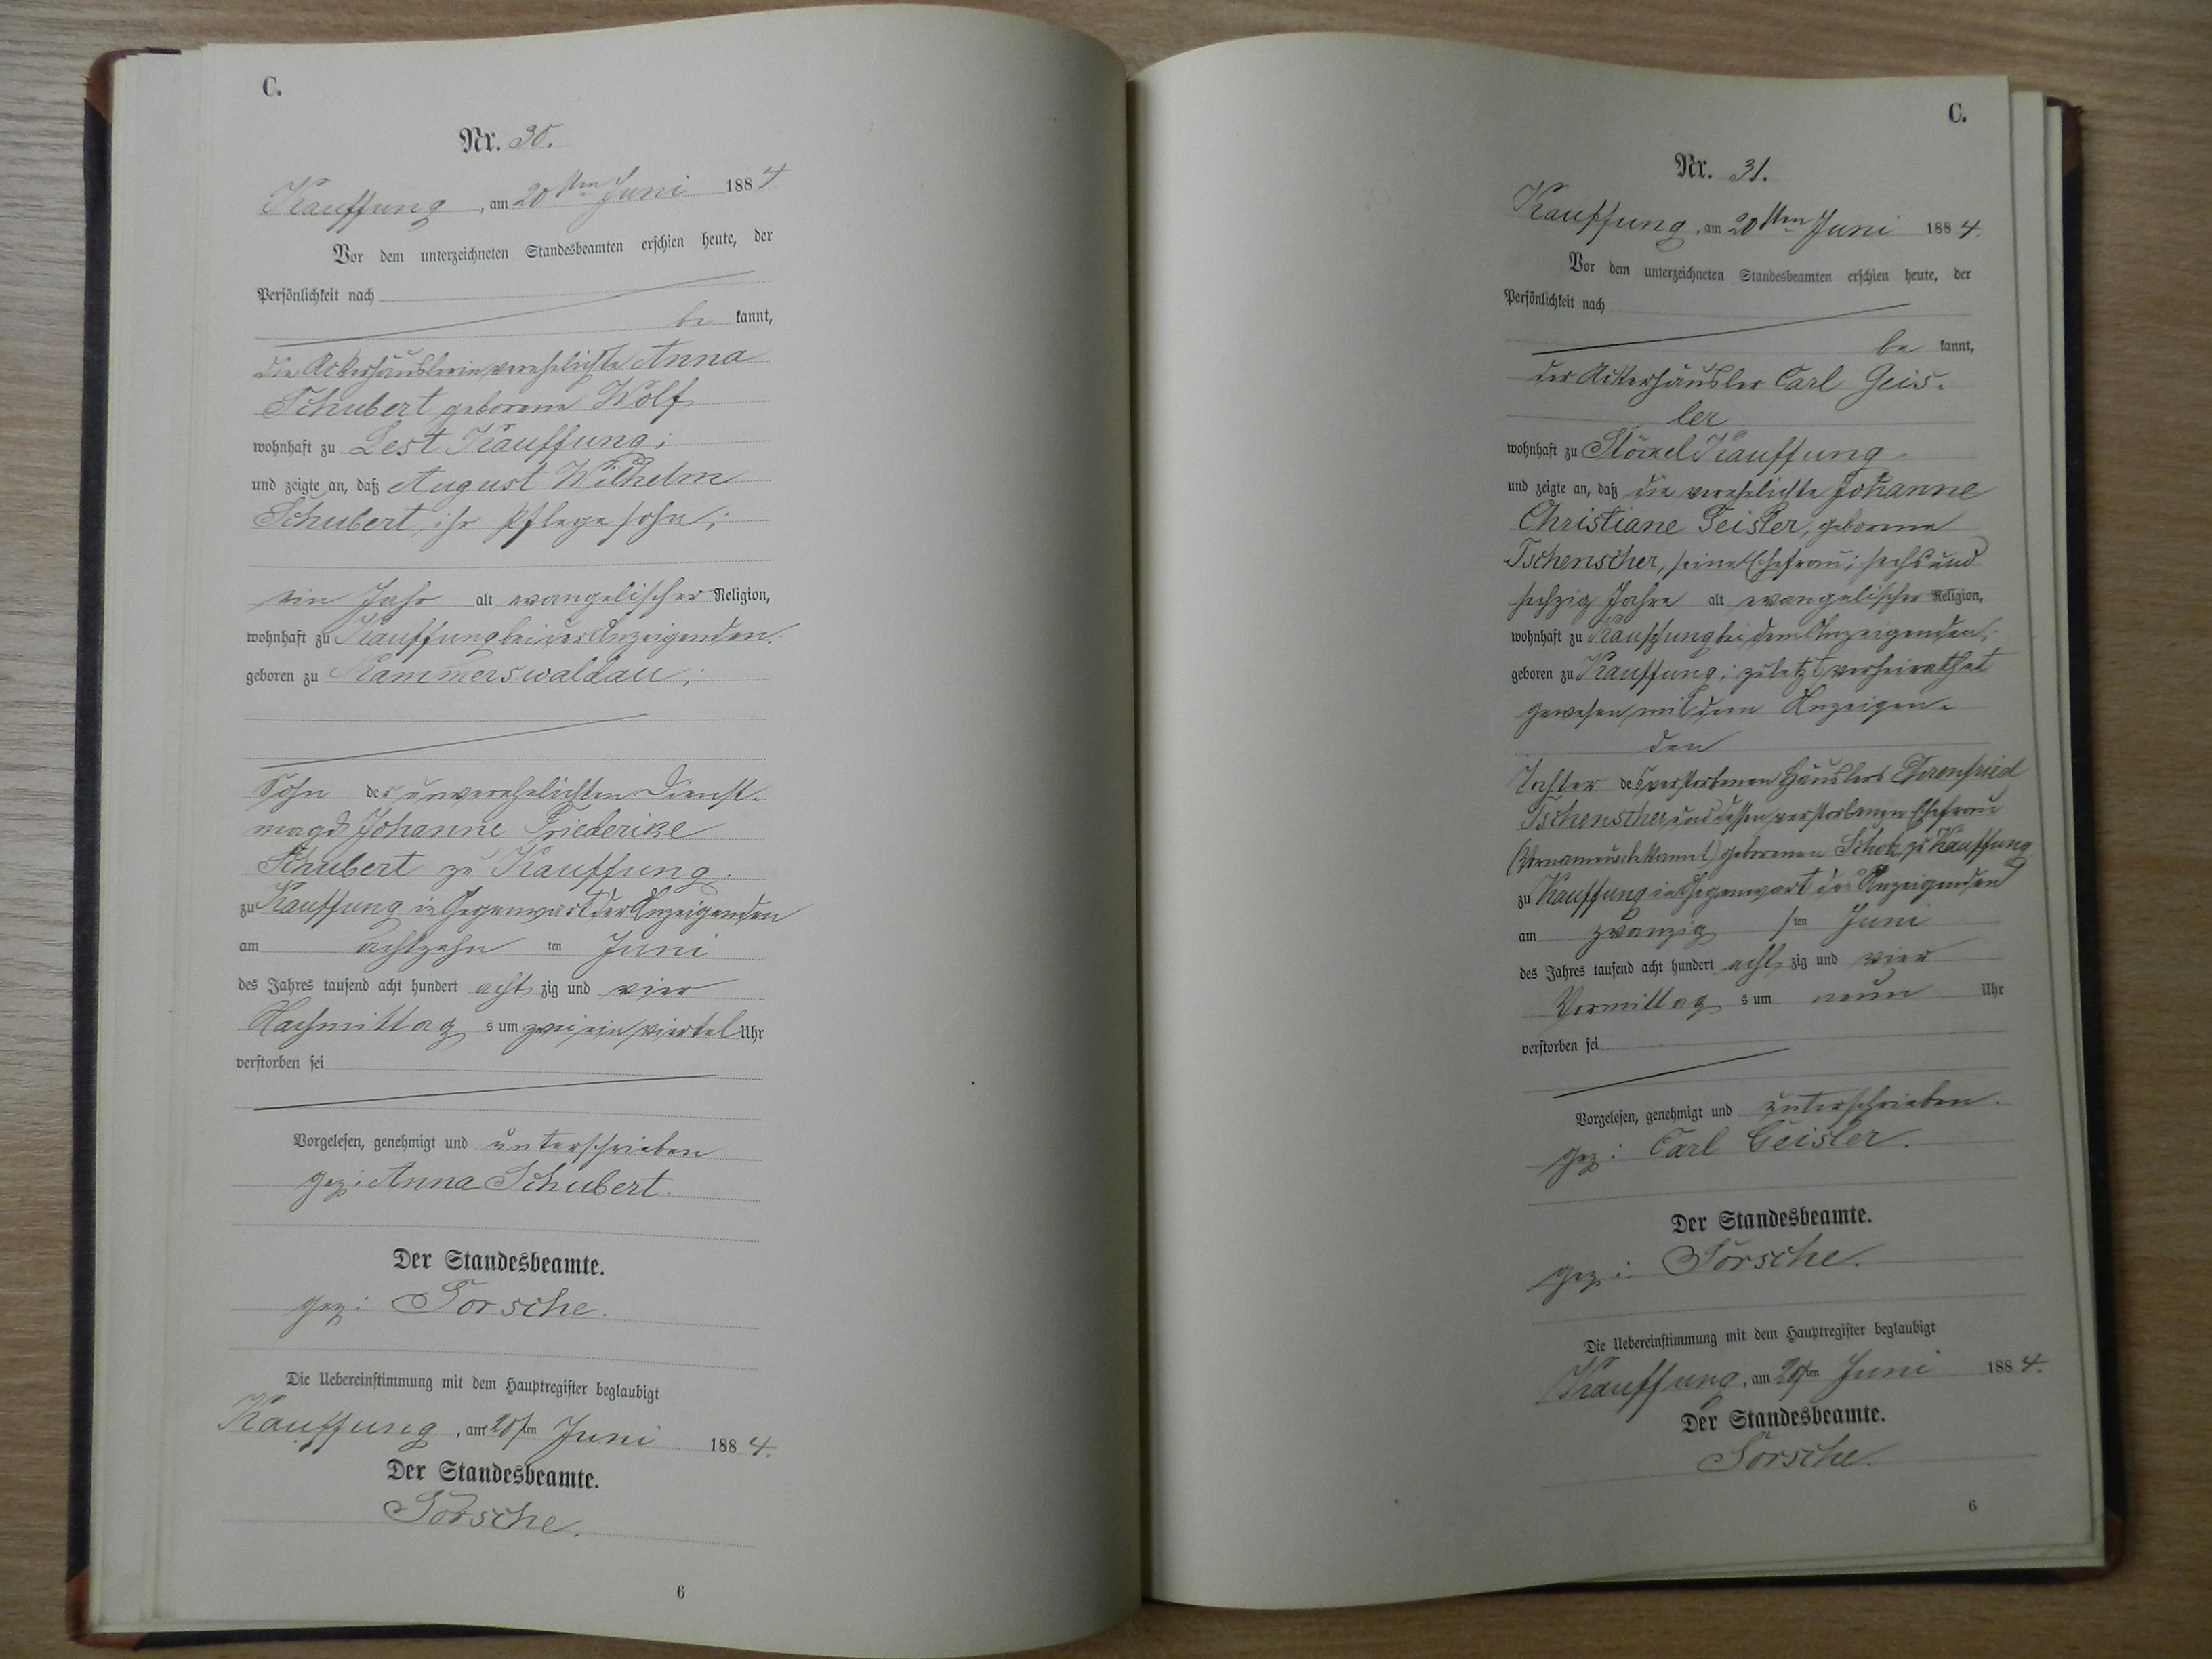 C.
Nr. 30.
Kauffung, am 20sten Juni 1884
Vor dem unterzeichneten Standesbeamten erschien heute, der
Persönlichkeit nach
be kannt,
die Ackerhäuslerin verehelichte Anna
Schubert geborene Wolf
wohnhaft zu Lest Kauffung;
und zeigte an, daß August Wilhelm
Schubert, ihr Pflegesohn;
ein Jahr alt evangelischer Religion,
wohnhaft zu Kauffung bei der Anzeigenden;
geboren zu Kammerswaldau;
Sohn der unverehelichten Dienst-
magd Johanne Friederike
Schubert zu Kauffung.
zu Kauffung in Gegenwart der Anzeigenden
am achtzehn ten Juni
des Jahres tausend acht hundert acht zig und vier
Nachmittag s um zwei ein viertel Uhr
verstorben sei
Vorgelesen, genehmigt und unterschrieben
gez: Anna Schubert.
Der Standesbeamte.
gez: Torsche.
Die Uebereinstimmung mit dem Hauptregister beglaubigt
Kauffung, am 20sten Juni 1884.
Der Standesbeamte.
Torsche.
6
C.
Nr. 31.
Kauffung, am 20sten Juni 1884
Vor dem unterzeichneten Standesbeamten erschien heute, der
Persönlichkeit nach
be kannt,
der Ackerhäusler Carl Geis-
ler
wohnhaft zu Stöckel Kauffung
und zeigte an, daß die verehelichte Johanne
Christiane Geisler, geborene
Tschenscher, seine Ehefrau; sechs und
sechzig Jahre alt evangelischer Religion,
wohnhaft zu Kauffung bei dem Anzeigenden;
geboren zu Kauffung; zuletzt verheirathet
gewesen mit dem Anzeigen-
den
Tochter des verstorbenen Häuslers Ehrenfried
Tschenscher und dessen verstorbenen Ehefrau
(Vorname unbekannt) geborenen Scholz zu Kauffung
zu Kauffung in Gegenwart des Anzeigenden
am zwanzig sten Juni
des Jahres tausend acht hundert acht zig und vier
Vormittag s um neun Uhr
verstorben sei
Vorgelesen, genehmigt und unterschrieben.
gez: Carl Geisler.
Der Standesbeamte.
gez: Torsche.
Die Uebereinstimmung mit dem Hauptregister beglaubigt
Kauffung, am 20sten Juni 1884.
Der Standesbeamte.
Torsche.
6